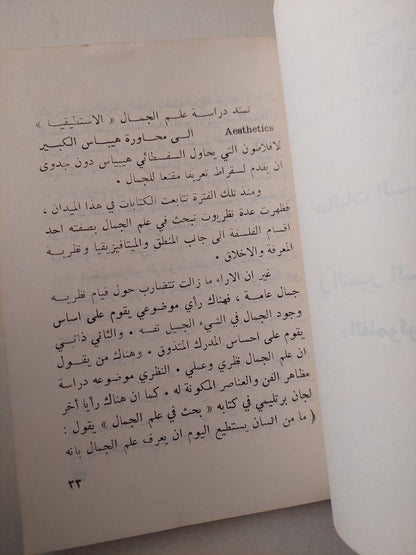 تمتد دراسة علم الجمال « الاستطيقيا »
Aesthetics الى محاورة هيباس الكبير
لافلاطون التي يحاول السفسطائي هيبياس دون جدوى
ان يقدم لسقراط تعريفا مقنعا للجمال .
ومنذ تلك الفترة تتابعت الكتابات في هذا الميدان ،
فظهرت عدة نظريات تبحث في علم الجمال بصفته احد
اقسام الفلسفة الى جانب المنطق والميتافيزيقيا ونظرية
المعرفة والاخلاق .
غير ان الاراء ما زالت تتضارب حول قيام نظرية
جمال عامة ، فهناك رأي موضوعي يقوم على اساس
وجود الجمال في الشيء الجميل نفسه . والثاني ذاتي
يقوم على احساس المدرك المتذوق . وهناك من يقول
ان علم الجمال نظري وعملي . النظري موضوعه دراسة
مظاهر الفن والعناصر المكونة له . كما ان هناك رأيا آخر
لجان برتليمي في كتابه « بحث في علم الجمال » يقول :
( ما من انسان يستطيع اليوم ان يعرف علم الجمال بانه
٣٣